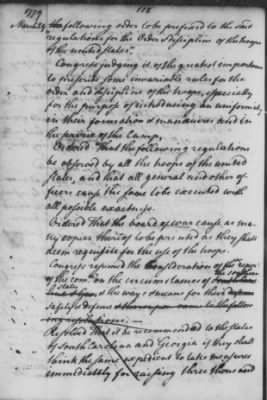 118
1779
March 29
the following order to be prefixed to the said
regulations for the order & discipline of the troops
of the united states.
Congress judging it of the greatest importance
to prescribe some invariable rules for the
order and discipline of the troops, especially
for the purpose of introducing an uniformity
in their formation & manœuvres and in
the service of the camp.
Ordered That the following regulations
be observed by all the troops of the united
states, and that all general and other of-
ficers cause the same to be executed with
all possible exactness.
Ordered That the board of war cause as ma
ny copies thereof to be printed as they shall
deem requisite for the use of the troops.
Congress resumed the consideration of the report
of the comee. on the circumstances of the southern
states & the ways & means for their
safety & defence
Resolved That it be recommended to the states
of South Carolina and Georgia if they shall
think the same expedient to take measures
immediately for raising three thousand